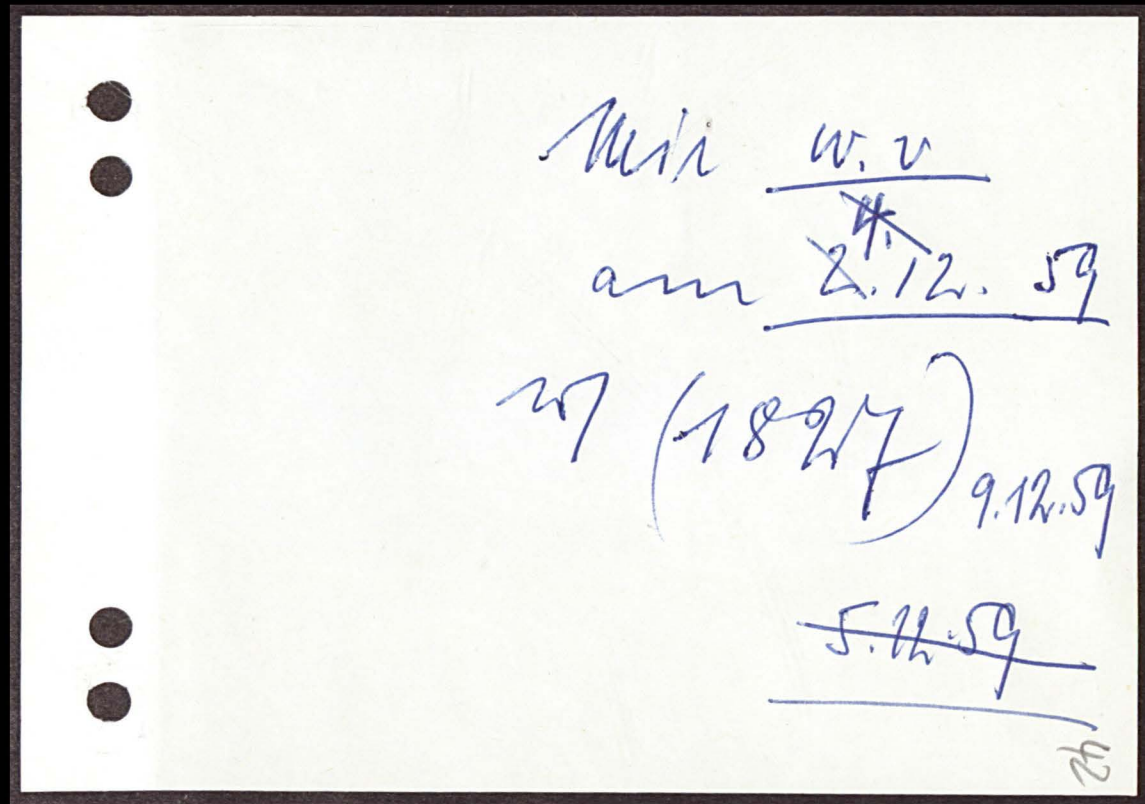 Mir w.v
4.
am 2.12. 59
(1827)
9.12.59
5.12.59
42